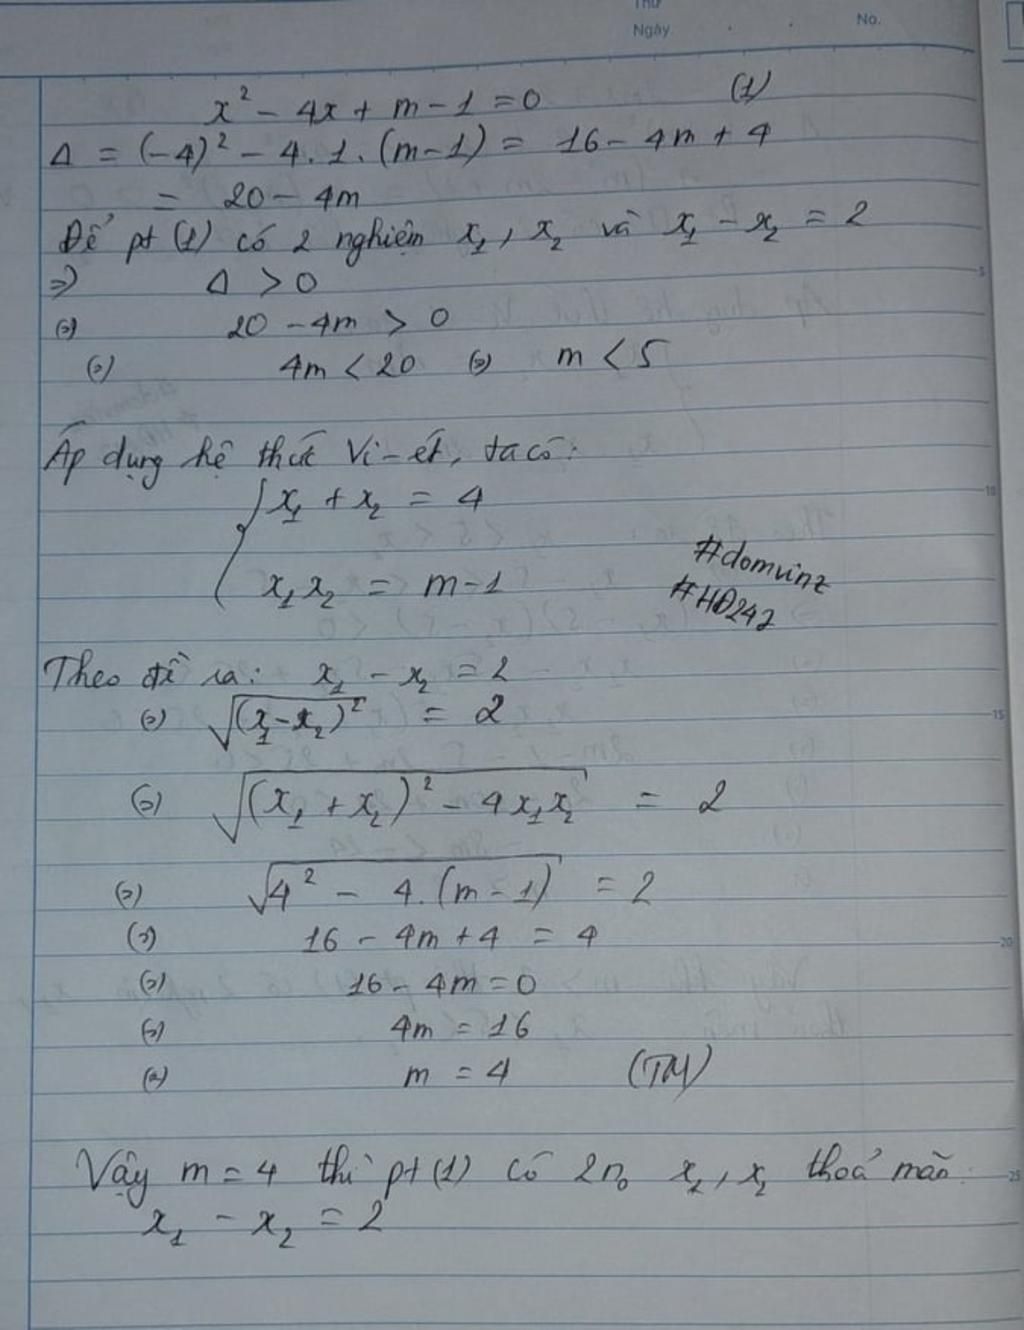 Thứ
Ngày No.
x² - 4x + m - 1 = 0 (1)
Δ = (-4)² - 4.1.(m-1) = 16 - 4m + 4
= 20 - 4m
Để pt (1) có 2 nghiệm x₁, x₂ và x₁ - x₂ = 2
=> Δ > 0
(=) 20 - 4m > 0
(=) 4m < 20 (=) m < 5
Áp dụng hệ thức Vi-ét, ta có:
x₁ + x₂ = 4
x₁x₂ = m-1
#domvinz
#HĐ247
Theo đề ra: x₁ - x₂ = 2
(=) √(x₁-x₂)² = 2
(=) √(x₁ + x₂)² - 4x₁x₂ = 2
(=) √4² - 4.(m-1) = 2
(=) 16 - 4m + 4 = 4
(=) 16 - 4m = 0
(=) 4m = 16
(=) m = 4 (TM)
Vậy m = 4 thì pt (1) có 2n₀ x₁, x₂ thoả mãn
x₁ - x₂ = 2
5
10
15
20
25